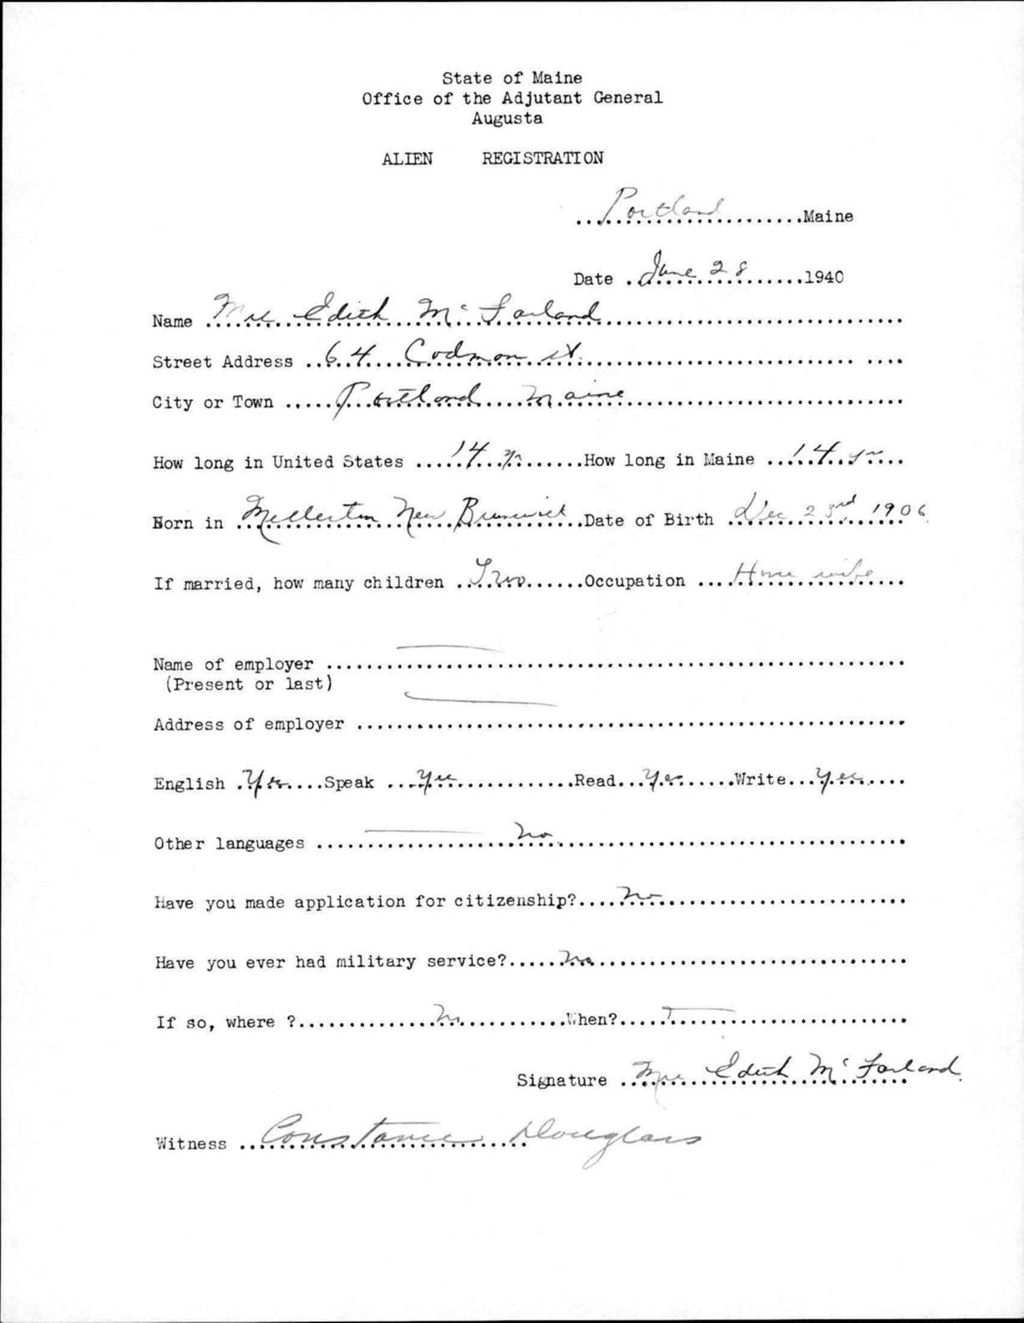 State of Maine
Office of the Adjutant General
Augusta
ALIEN REGISTRATION
Portland Maine
Date June 28 1940
Name Mrs Edith McFarland
Street Address 64 Codman st.
City or Town Portland Maine
How long in United States 14 yr. How long in Maine 14 yr
Born in Millerton New Brunswick Date of Birth Dec 23rd 1906
If married, how many children Two Occupation House wife
Name of employer
(Present or last)
Address of employer
English Yes Speak Yes Read Yes Write Yes
Other languages No
Have you made application for citizenship? No
Have you ever had military service? No
If so, where ? No When?
Signature Mrs Edith McFarland
Witness Constance Douglass